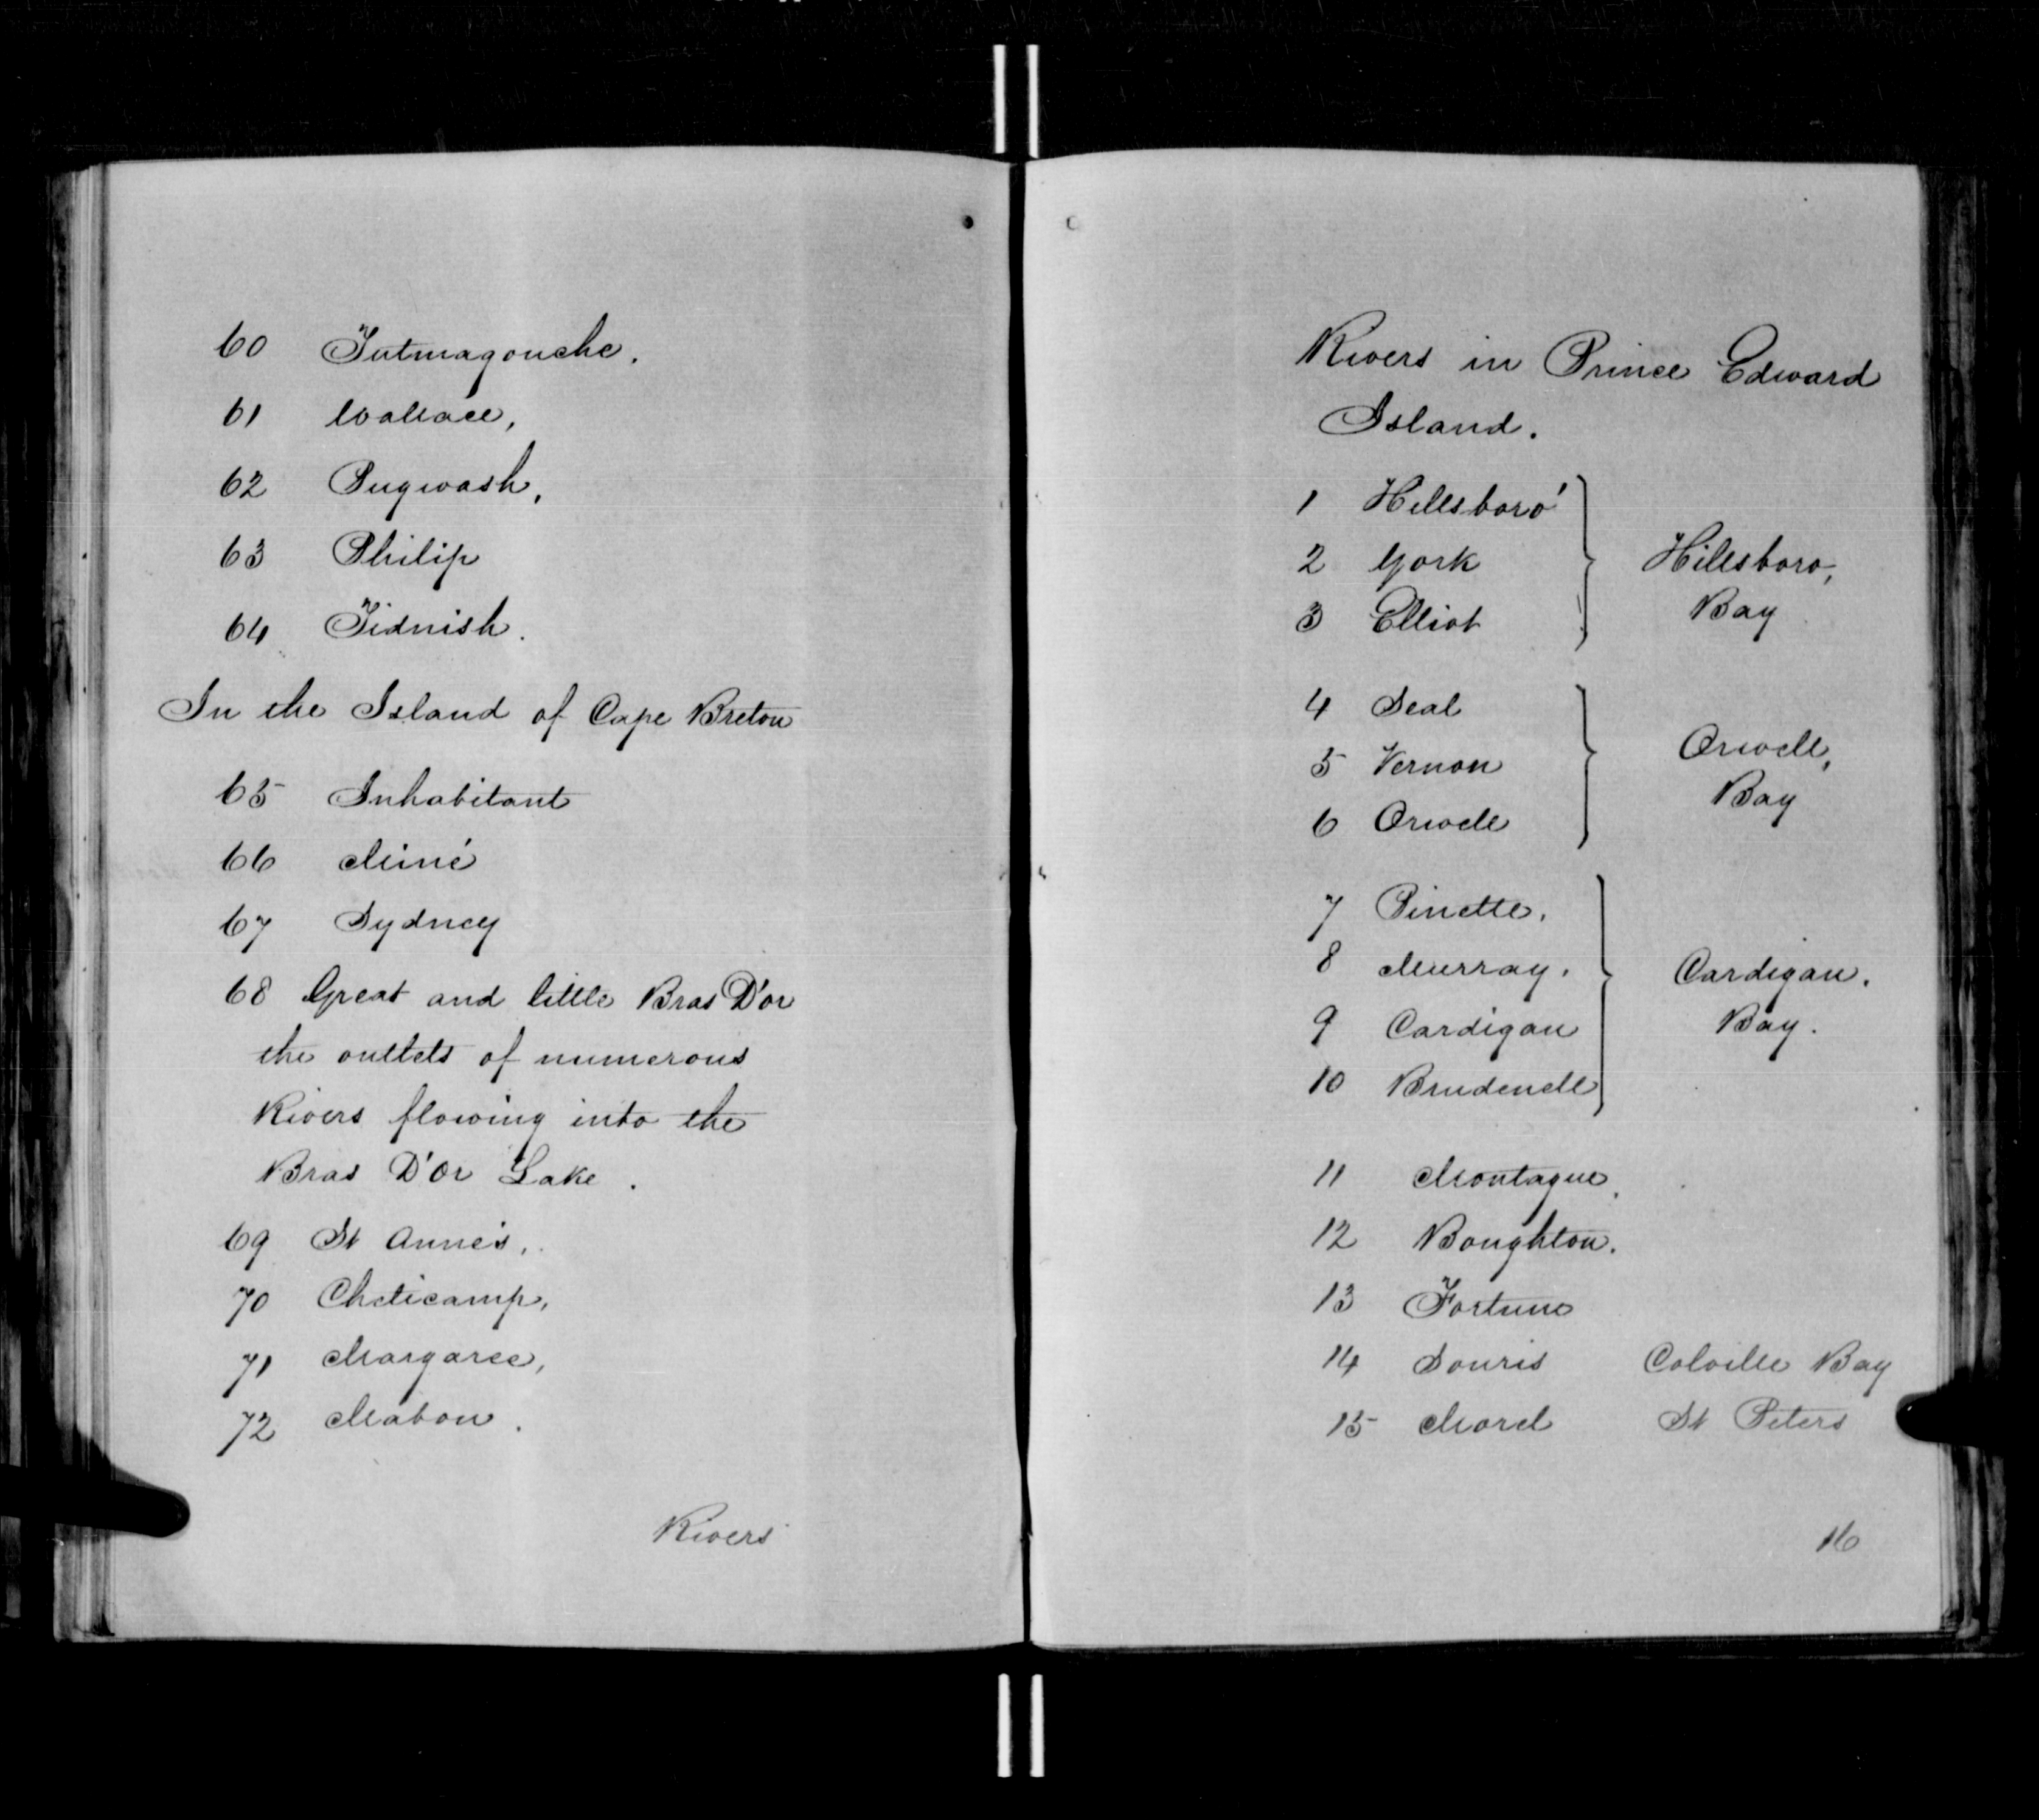 60 Tutmagouche.
61 Wallace,
62 Pugwash,
63 Philip
64 Tidnish.
In the Island of Cape Breton
65 Inhabitant
66 Miné
67 Sydney
68 Great and little Bras D'or
the outlets of numerous
Rivers flowing into the
Bras D'Or Lake.
69 St Anne's,
70 Cheticamp,
71 Margaree,
72 Mabou.
Rivers
Rivers in Prince Edward
Island.
1 Hillsboro'
2 York
3 Elliot
Hillsboro,
Bay
4 Seal
5 Vernon
6 Orwell
Orwell,
Bay
7 Pinette.
8 Murray.
9 Cardigan
10 Brudenell
Cardigan.
Bay.
11 Montague.
12 Boughton.
13 Fortune
14 Souris Colville Bay
15 Morell St Peters
16